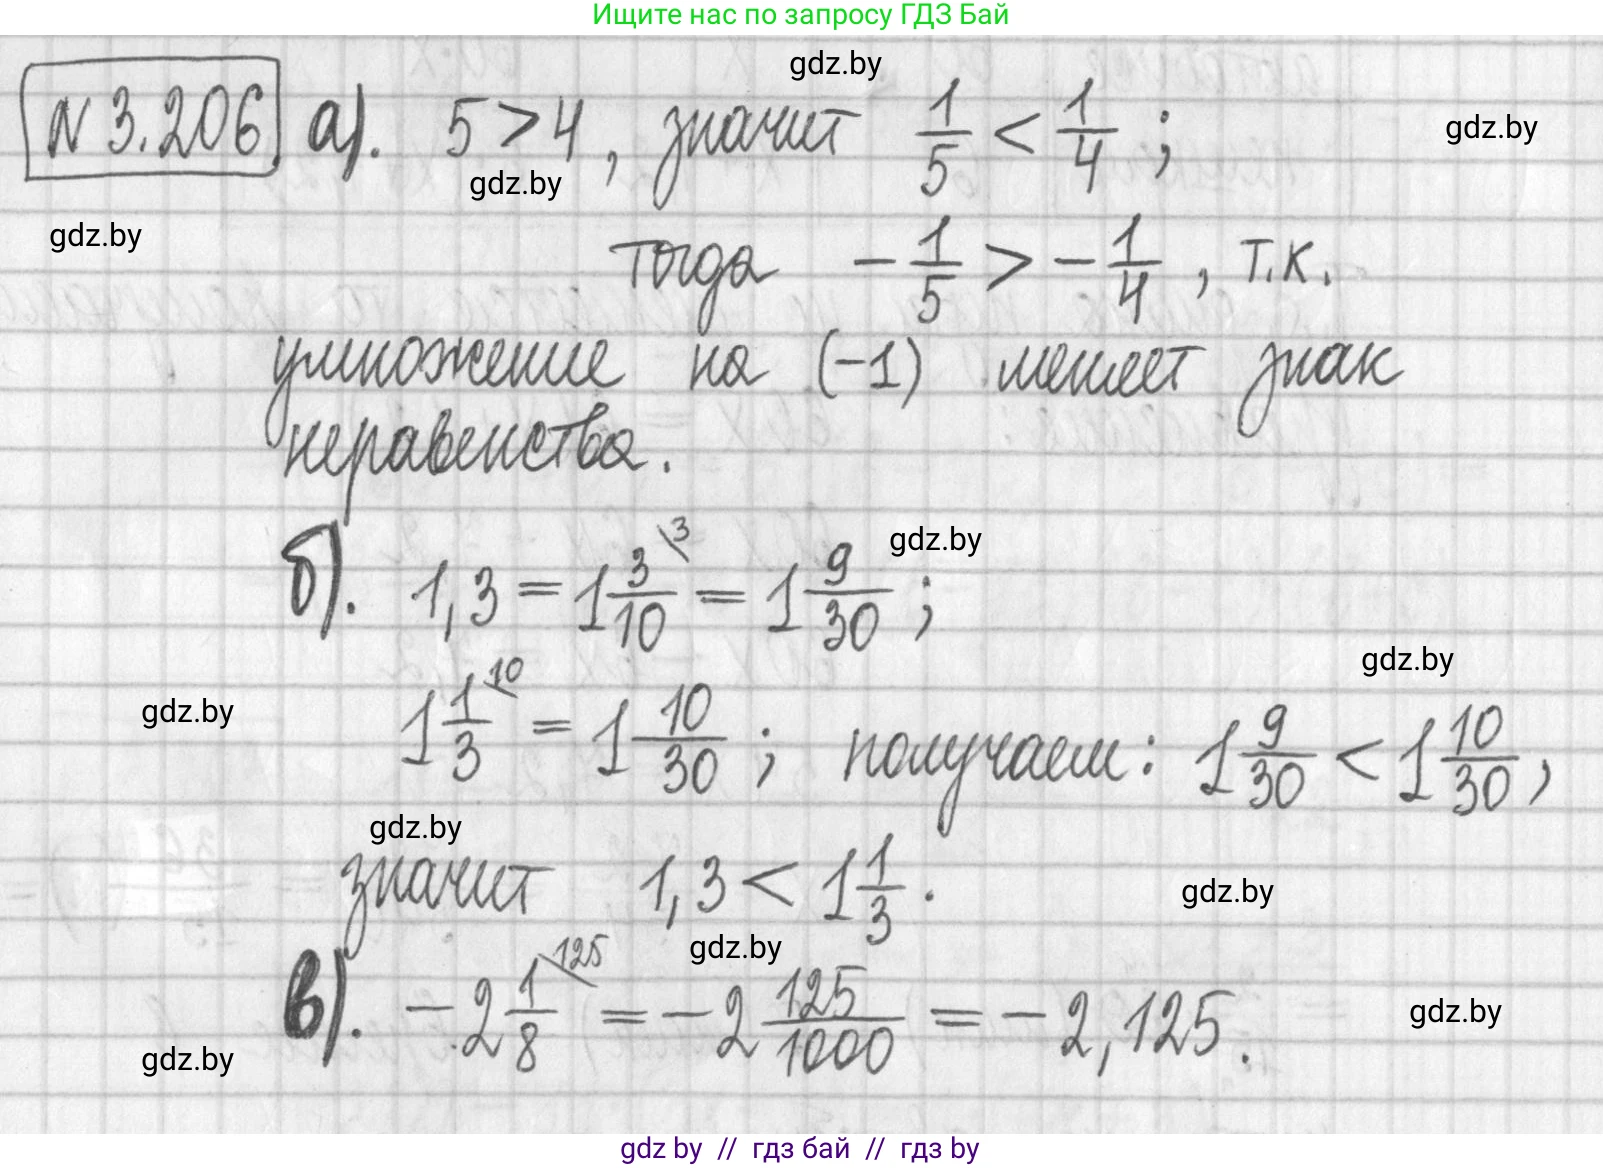 Ищите нас по запросу ГДЗ Бай
gdz.by
N 3.206. а). 5 > 4, значит 1/5 < 1/4 ;
gdz.by
gdz.by
gdz.by
тогда -1/5 > -1/4, т.к.
умножение на (-1) меняет знак
неравенства.
б). 1,3 = 1 3/10 \3 = 1 9/30 ;
gdz.by
gdz.by
1 1/3 \10 = 1 10/30 ; получаем: 1 9/30 < 1 10/30,
gdz.by
gdz.by
значит 1,3 < 1 1/3.
gdz.by
gdz.by
в). -2 1/8 \125 = -2 125/1000 = -2,125.
gdz.by
gdz.by
gdz by // гдз бай // гдз by